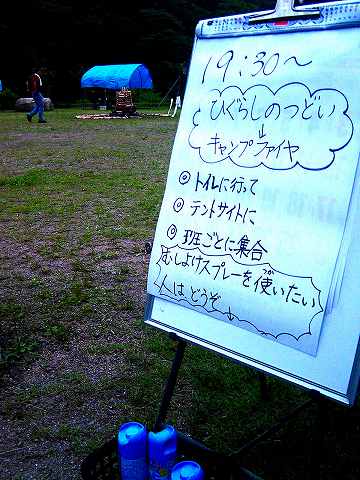 19:30〜
ひぐらしのつどい
↓
キャンプファイヤ
◎トイレに行って
◎テントサイトに
◎班ごとに集合
むしよけスプレーを使いたい
人はどうぞ♪